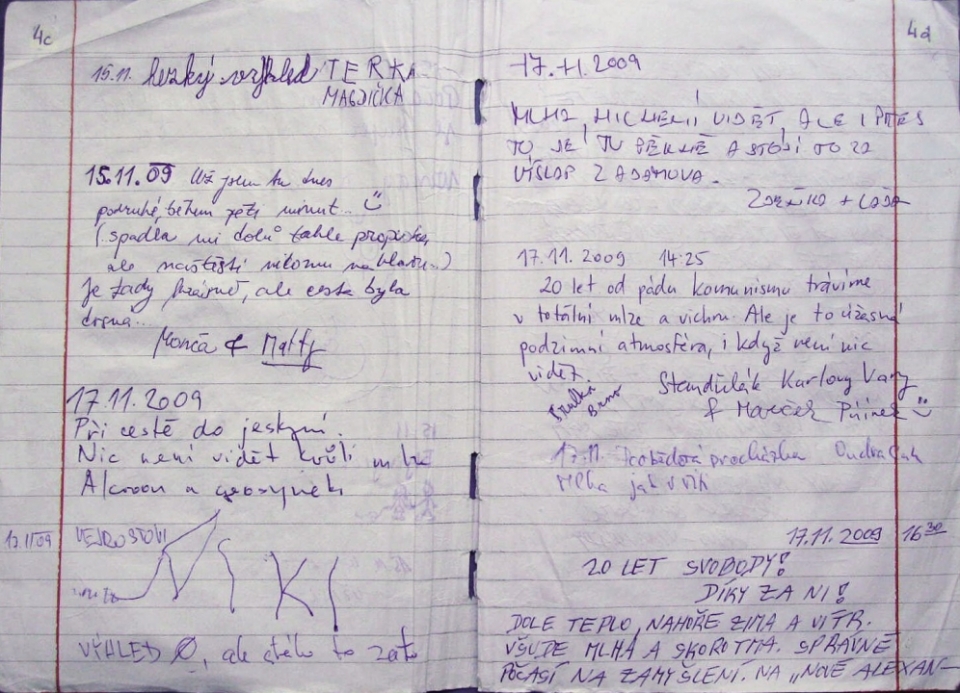 4c
15.11. hezký výhled TERKA
MAGDIČKA
15.11.09 Už jsem tu dnes
podruhé, během pěti minut...
(spadla mi dolů tahle propiska,
ale naštěstí nikomu na hlavu...)
Je tady krásně, ale cesta byla
drsná...
Monča & Matty
17.11.2009
Při cestě do jeskyní.
Nic není vidět kvůli mlze
17.11.09
VÝHLED Ø, ale stálo to zato
4d
17.11.2009
MLHA, NIC NENÍ VIDĚT, ALE I PŘES
TO JE TU PĚKNĚ A STOJÍ TO ZA
VÝŠLAP Z ADAMOVA.
ZDENIKA + LÁĎA
17.11.2009 14:25
20 let od pádu komunismu trávíme
v totální mlze a vichru. Ale je to úžasná
podzimní atmosféra, i když není nic
vidět.
Brno
Karlovy Vary
& Mareček
17.11. procházka
Mlha jak
17.11.2009 16 30
20 LET SVOBODY!
DÍKY ZA NI!
DOLE TEPLO, NAHOŘE ZIMA A VÍTR.
VŠUDE MLHA A SKOROTMA. SPRÁVNÉ
POČASÍ NA ZAMYŠLENÍ. NA „NOVÉ ALEXAN-